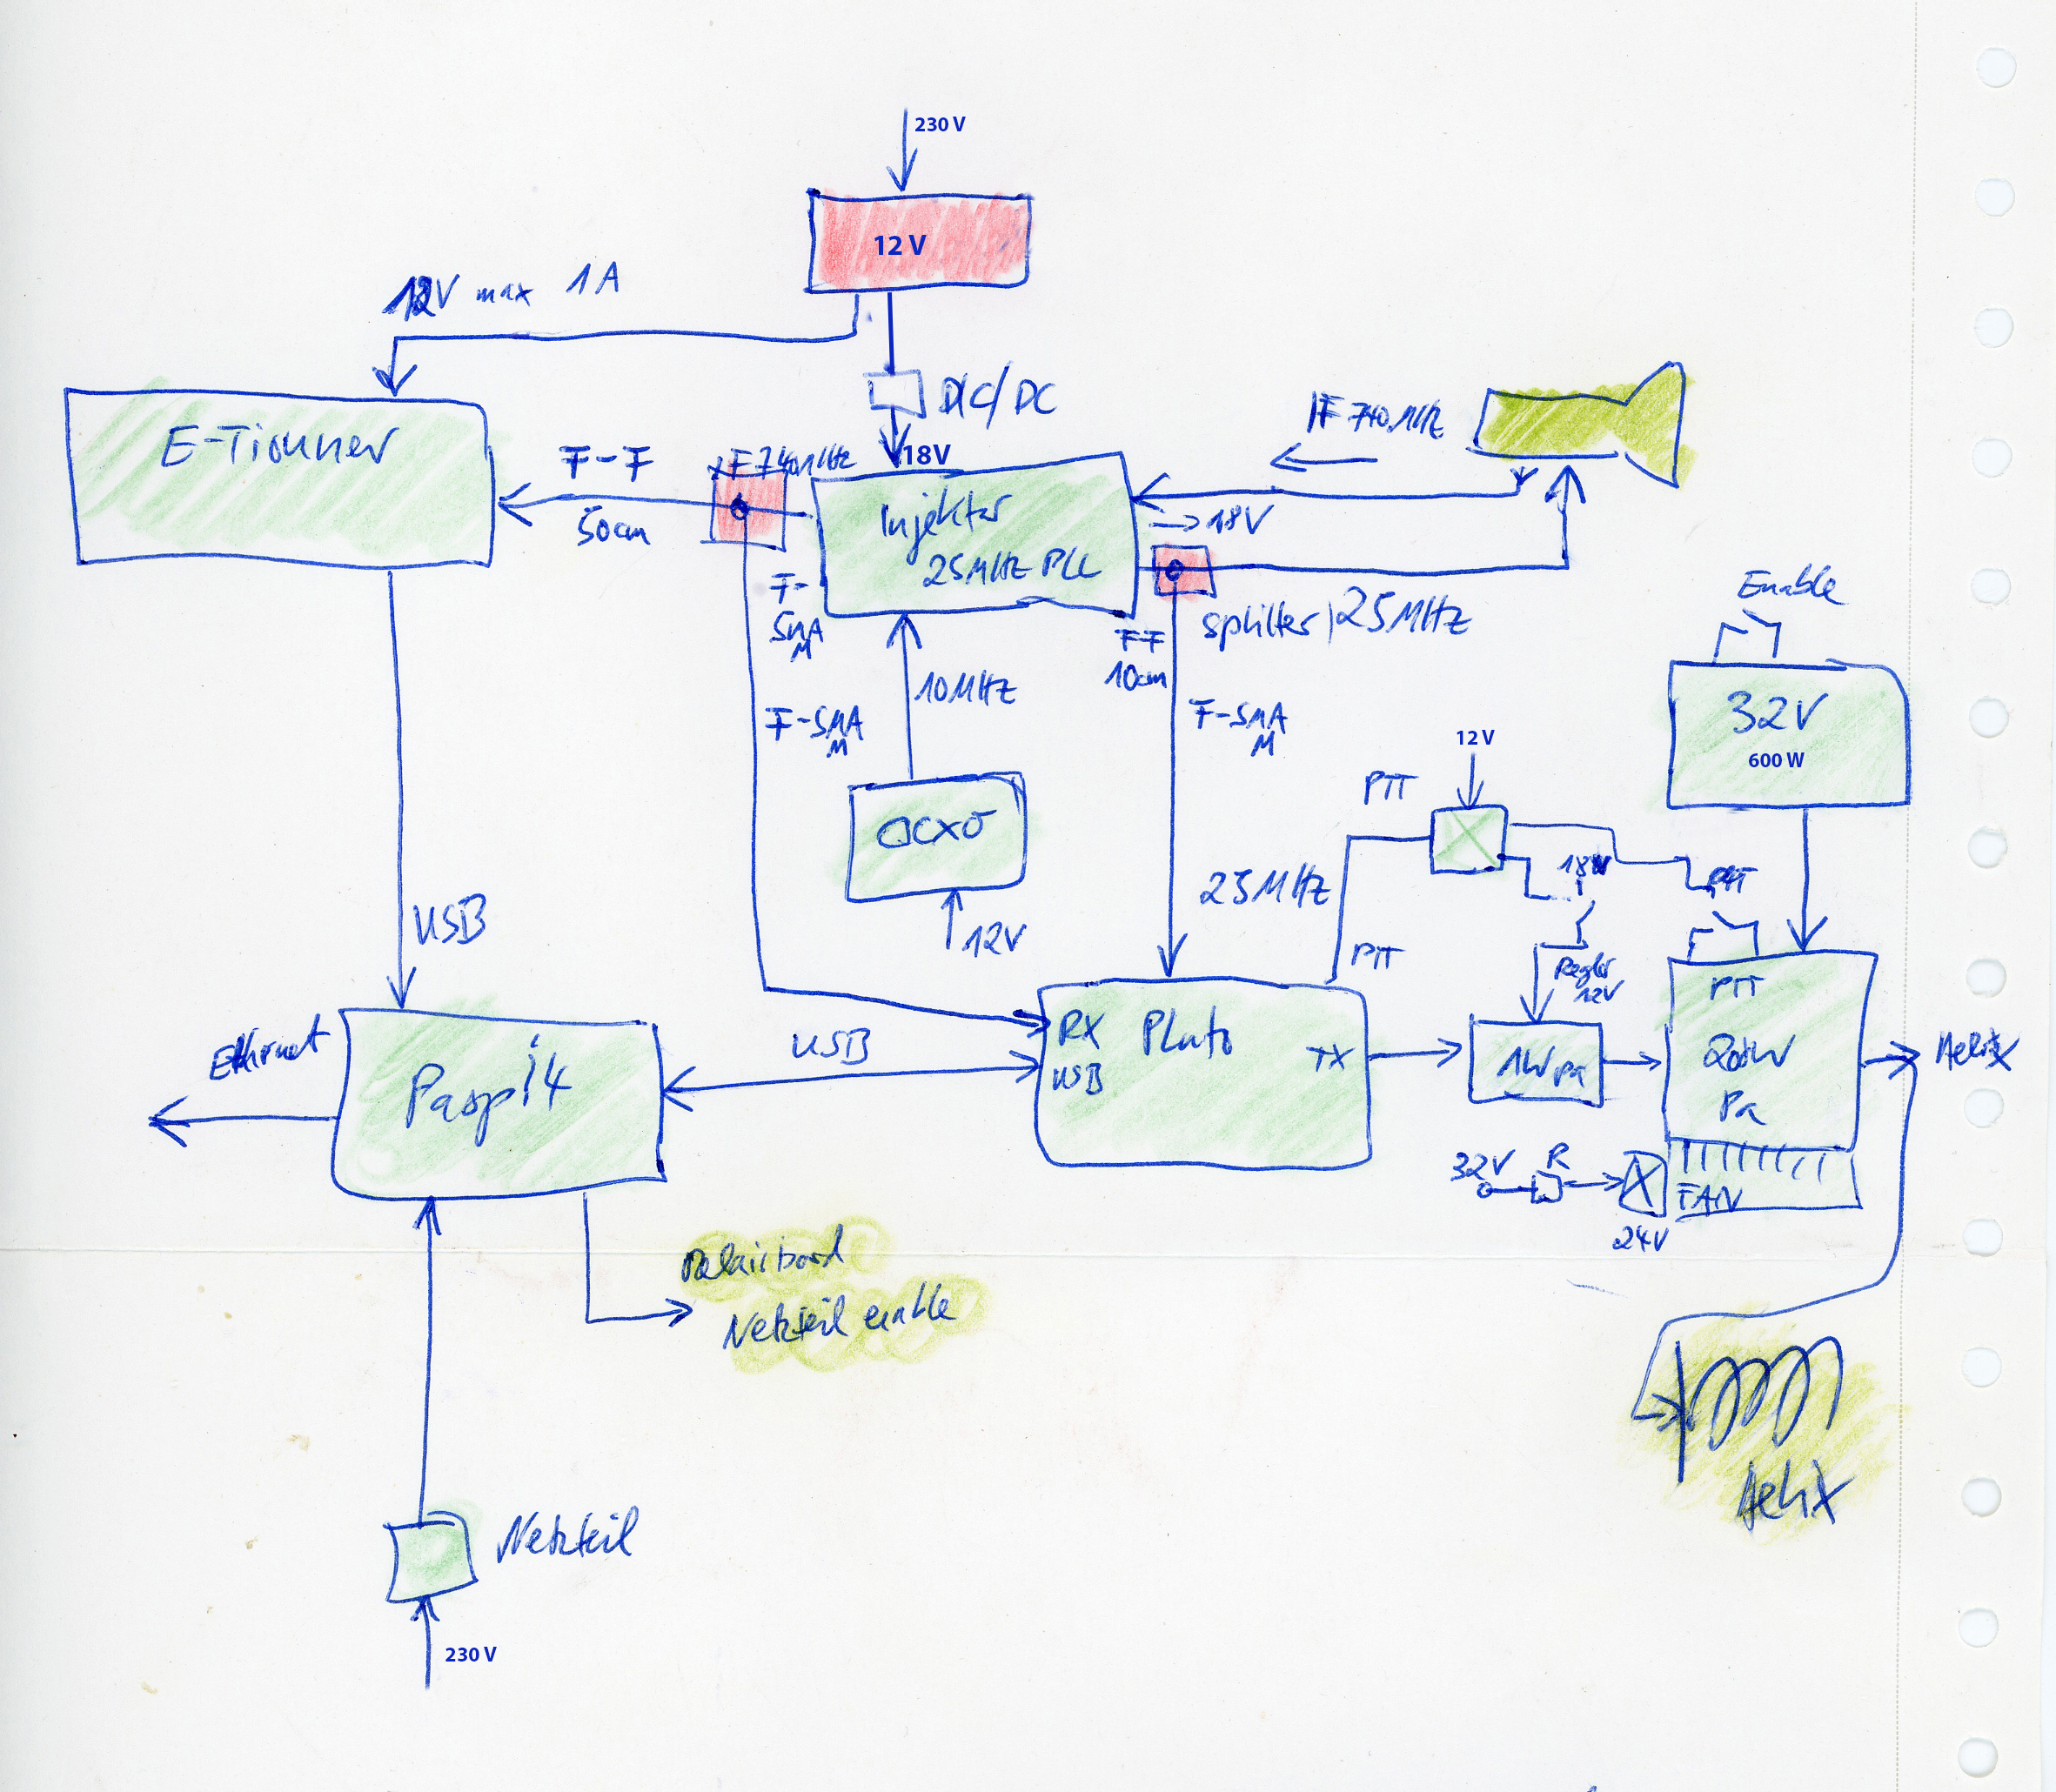 230 V
12 V
12V max 1A
DC/DC
18V
IF 740 MHz
E-Tiouner
F-F
50cm
IF 740 MHz
Injektor
25MHz PLL
→ 18V
F-
SMA
M
FF
10cm
splitter 25MHz
Enable
10MHz
F-SMA
M
F-SMA
M
32V
600 W
12 V
PTT
OCXO
25MHz
18V
PTT
12V
USB
PTT
Regler
12V
PTT
Ethernet
Rasp i4
USB
RX Pluto
USB
TX
1W pa
200W
Pa
Helix
32V
R
FAN
24V
Relaisbord
Netzteil enable
Helix
Netzteil
230 V